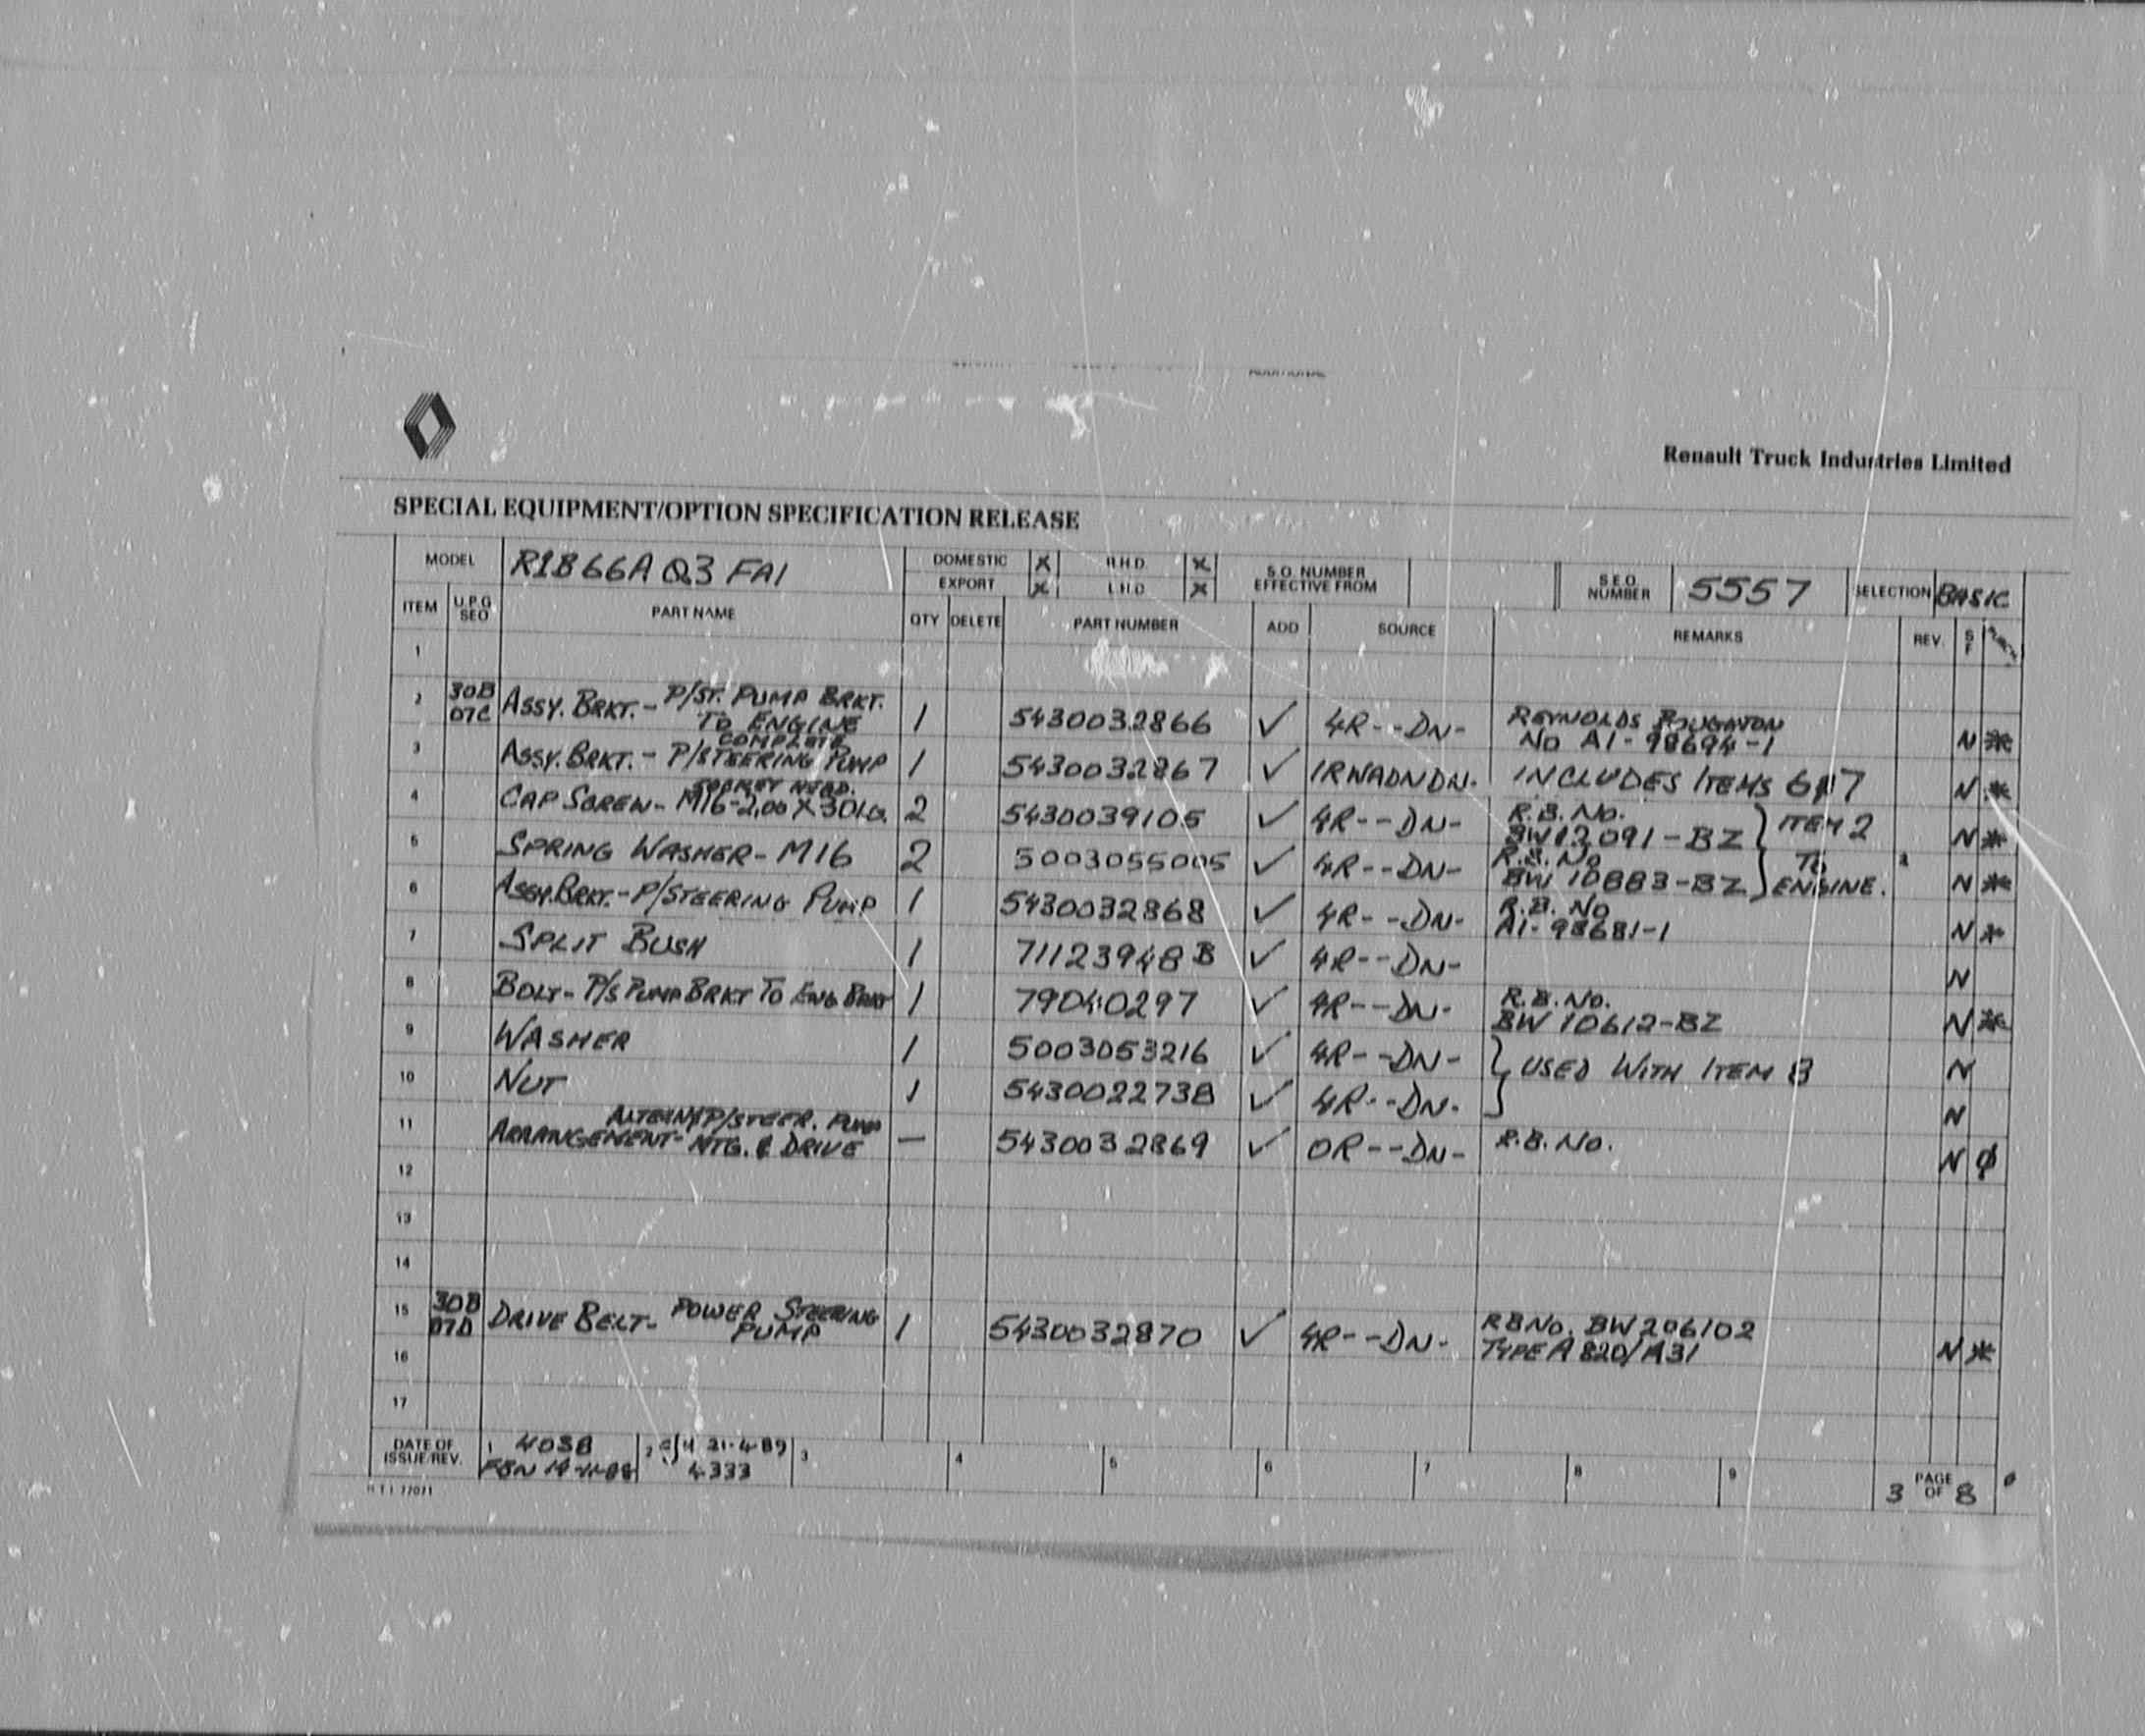 Renault Truck Industries Limited
SPECIAL EQUIPMENT/OPTION SPECIFICATION RELEASE
MODEL R1B66A Q3 FA1 DOMESTIC X R.H.D. X S.O. NUMBER EFFECTIVE FROM S.E.O. NUMBER 5557 SELECTION BASIC
EXPORT X L.H.D X
ITEM U.P.G SEQ PART NAME QTY DELETE PART NUMBER ADD SOURCE REMARKS REV. S F
1
2 30B 07C ASSY. BRKT. - P/ST. PUMP BRKT. TO ENGINE 1 5430032866 ✓ 4R--DN- REYNOLDS BOUGHTON No A1-98694-1 N *
3 ASSY. BRKT. - P/STEERING PUMP COMPLETE 1 5430032867 ✓ 1RWADNDN. INCLUDES ITEMS 6&7 N *
4 CAP SCREW - M16-2,00 X 30LG. SOCKET HEAD. 2 5430039105 ✓ 4R--DN- R.B. No. BW12091-BZ } ITEM 2 N *
5 SPRING WASHER - M16 2 5003055005 ✓ 4R--DN- R.B. No BW 10883-BZ } TO ENGINE. N *
6 ASSY. BRKT. - P/STEERING PUMP 1 5430032868 ✓ 4R--DN- R.B. No A1-98681-1 N *
7 SPLIT BUSH 1 71123948B ✓ 4R--DN- N
8 BOLT - P/S PUMP BRKT TO ENG BRKT 1 79040297 ✓ 4R--DN- R.B. No. BW 10612-BZ N *
9 WASHER 1 5003053216 ✓ 4R--DN- } USED WITH ITEM 8 N
10 NUT 1 5430022738 ✓ 4R--DN- N
11 ARRANGEMENT - P/STEER. PUMP MTG. & DRIVE — 5430032869 ✓ OR--DN- R.B. No. N Ø
12
13
14
15 30B 07D DRIVE BELT - POWER STEERING PUMP 1 5430032870 ✓ 4R--DN- RB No. BW206102 TYPE A 820/A31 N *
16
17
DATE OF ISSUE/REV. 1 4038 2 21-4-89 3 4 5 6 7 8 9 3 PAGE OF 8
4333
R T I 77071